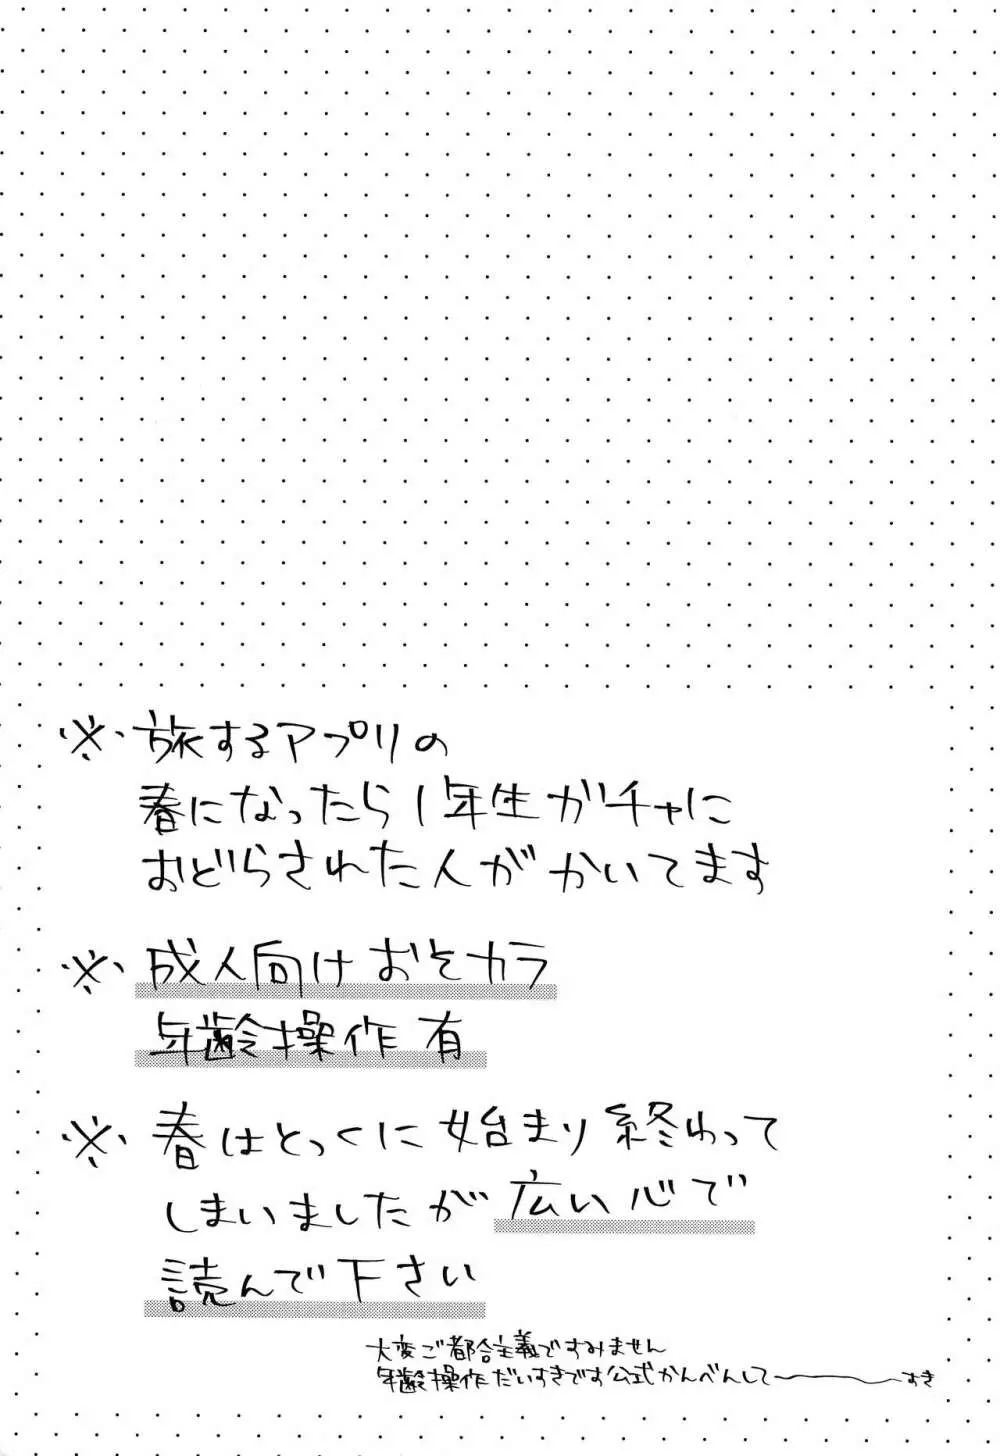 ※旅するアプリの
春になったら1年生ガチャに
おどらされた人がかいてます
※成人向けおそカラ
年齢操作有
※春はとっくに始まり終わって
しまいましたが広い心で
読んで下さい
大変ご都合主義ですみません
年齢操作だいすきです公式かんべんして〜すき